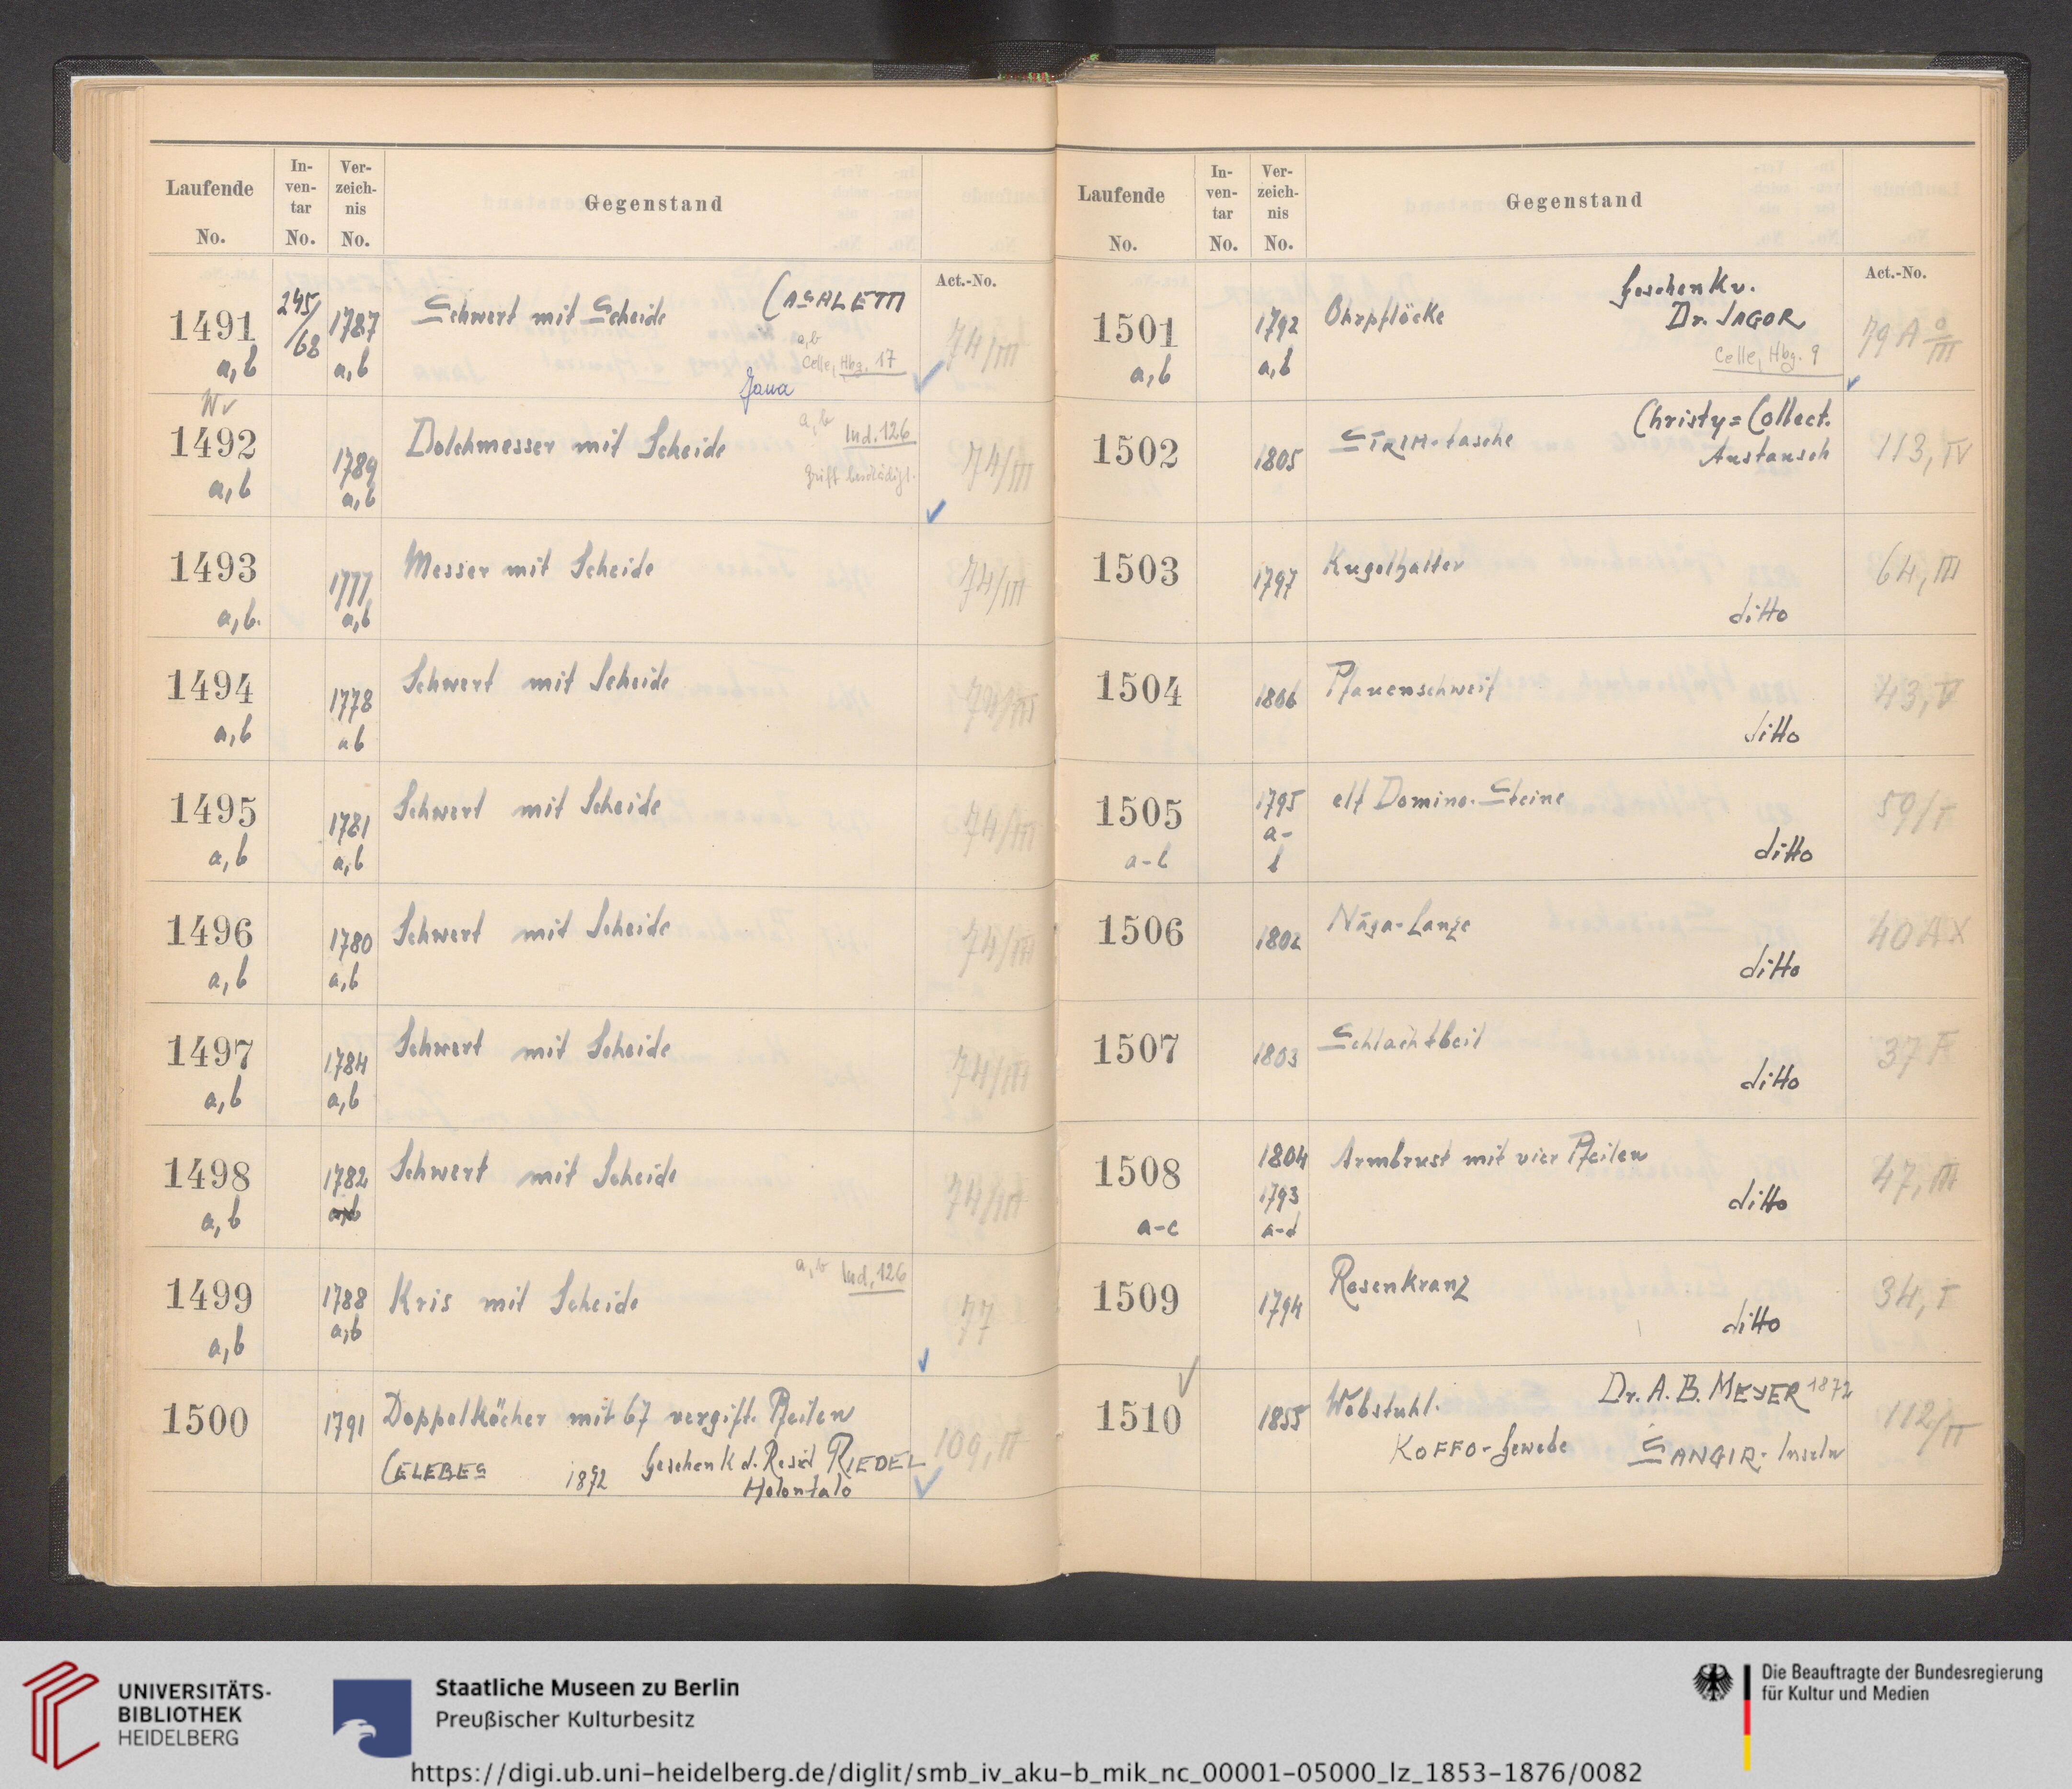 Laufende No.
In-ven-tar No.
Ver-zeich-nis No.
Gegenstand
Act.-No.
1491 a,b 245/68 1787 a,b Schwert mit Scheide CASALETTI 74/III
a,b
Celle, Hbg. 17
Java
1492 a,b 1789 a,b Dolchmesser mit Scheide a,b Ind. 126 74/III
Griff beschädigt.
1493 a,b. 1777 a,b Messer mit Scheide 74/III
1494 a,b 1778 ab Schwert mit Scheide 74/III
1495 a,b 1781 a,b Schwert mit Scheide 74/III
1496 a,b 1780 a,b Schwert mit Scheide 74/III
1497 a,b 1784 a,b Schwert mit Scheide 74/III
1498 a,b 1782 Schwert mit Scheide 74/III
1499 a,b 1788 a,b Kris mit Scheide a,b Ind. 126 77
1500 1791 Doppelköcher mit 67 vergift. Pfeilen 109, II
CELEBES 1872 Geschenk d. Resid RIEDEL
Holontalo
Laufende No.
In-ven-tar No.
Ver-zeich-nis No.
Gegenstand
Act.-No.
1501 a,b 1792 a,b Ohrpflöcke Geschenk v.
Dr. JAGOR 79 A
Celle, Hbg. 9
1502 1805 SIRIH-tasche Christy=Collect.
Austausch 113, IV
1503 1797 Kugelhalter 64, III
ditto
1504 1806 Pfauenschweif 43, V
ditto
1505 a-l 1795 a-l elf Domino-Steine 59/I
ditto
1506 1802 Nāga-Lanze 40 A X
ditto
1507 1803 Schlachtbeil 37
ditto
1508 a-e 1804 1793 a-d Armbrust mit vier Pfeilen 47, III
ditto
1509 1794 Rosenkranz 34, I
ditto
1510 1855 Webstuhl. Dr. A. B. MEYER 1872 112/II
KOFFO-Gewebe SANGIR-Inseln
UNIVERSITÄTS-
BIBLIOTHEK
HEIDELBERG
Staatliche Museen zu Berlin
Preußischer Kulturbesitz
Die Beauftragte der Bundesregierung
für Kultur und Medien
https://digi.ub.uni-heidelberg.de/diglit/smb_iv_aku-b_mik_nc_00001-05000_lz_1853-1876/0082